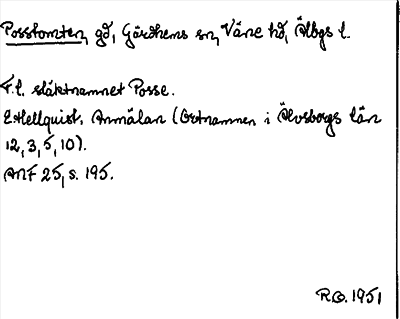 Posstomten, gd, Gärdhems sn, Väne hd, Älvbgs l.
F.l. släktnamnet Posse.
E. Hellquist, Anmälan (Ortnamnen i Älvsborgs län
12, 3, 5, 10).
ANF 25, s. 195.
R.O. 1951